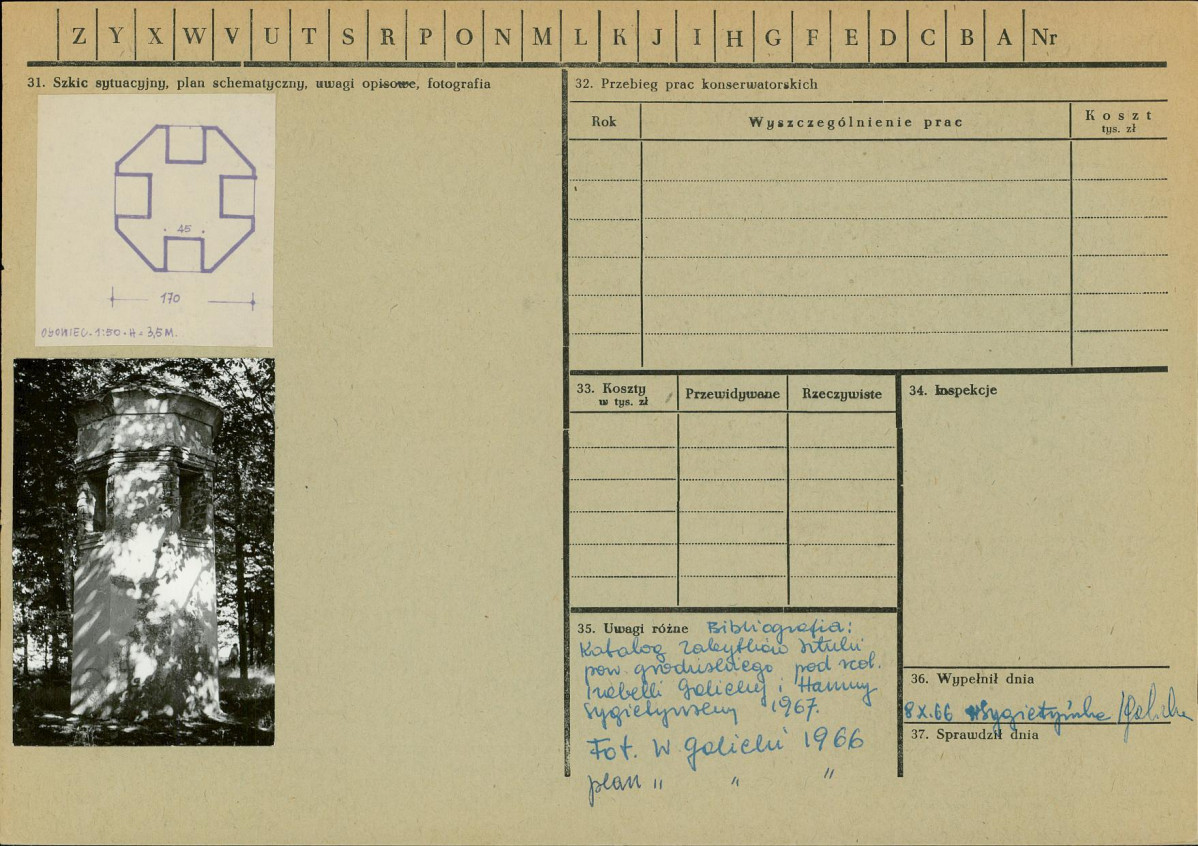 Z Y X W V U T S R P O N M L K J I H G F E D C B A Nr
31. Szkic sytuacyjny, plan schematyczny, uwagi opisowe, fotografia
45
170
OSOWIEC. 1:50. H = 3,5 M.
32. Przebieg prac konserwatorskich
Rok
Wyszczególnienie prac
Koszt
tys. zł
33. Koszty
w tys. zł
Przewidywane
Rzeczywiste
34. Inspekcje
35. Uwagi różne Bibliografia:
Katalog Zabytków Sztuki
pow. grodziskiego pod red.
Izabelli Galickiej i Hanny
Sygietyńskiej 1967.
Fot. W Galicki 1966
plan " " "
36. Wypełnił dnia
8 X. 66 HSygietyńska / Galicka
37. Sprawdził dnia